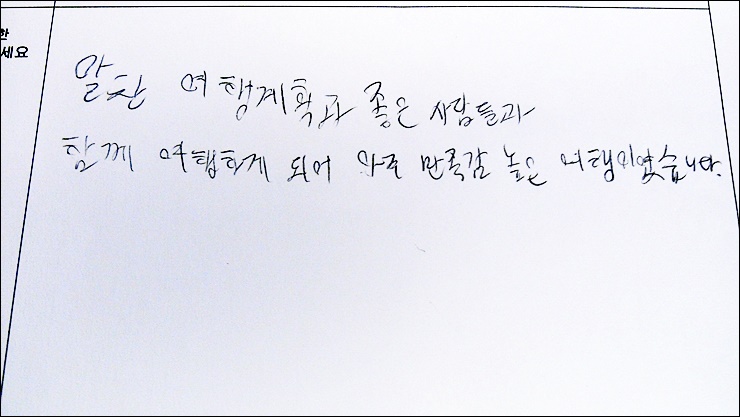 한
세요
알찬 여행계획과 좋은 사람들과
함께 여행하게 되어 아주 만족감 높은 여행이였습니다.